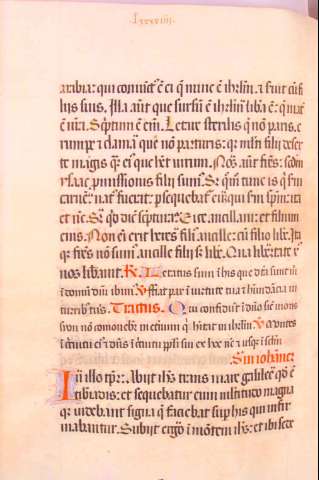 lxxxiiij.
arabia: qui coniūct' ē ei q̄ nunc ē ihrlm̄: ⁊ ſuit cū fi
liis ſuis. Illa aūt que ſurſū ē ihrlm̄ libā ē: q̄ mat̄
ē nr̄a. Sc̄ptum ē em̄. Letare ſterilis q̄ nō paris. e
rumpe ⁊ clama que nō parturis: qr̄ ml̓ti filii deſer
te magis q̄ ei' que het̄ virum. Nos aūt fr̄es: ſcd̄m
yſaac promiſſionis filii ſum'. S; quō tunc is q̄ ſm̄
carnē nat' fuerat: pſequebat̄ eū qui ſm̄ ſpm̄: ita
et nc̄. S; qd̄ dic̄ ſcptura? Eice ancillam: et filium
eius. Non ei erit heres fili' ancille: cū filio libe. Ita
q; fr̄es nō ſum' ancille filii ſ; libe. Qua libertate xp̄c
nos libauit. R̄. Letatus ſum ī his que dc̄a ſunt m̄
ī domū dn̄i ibim'. V̄ Fiat pax ī virtute tua ⁊ hūdācia in
turrib' tuis. Tractus. Qui confidūt ī dn̄o ſic̄ mons
ſyon nō cōmoueb̄t̄ in et̄num q̄ hītat in ihrlm̄. V̄ Mōtes
ī circuitu ei' ⁊ dn̄s ī circuitu ppl̓i ſui ex hoc nc̄ ⁊ uſq; ī ſclm̄
Sm̄ iohanne;
In illo tp̄r̄: Abiit ihs̄ trans mare galilee qd̄ ē
tibiadis: et ſequebatur eum multitudo magna
qr̄ videbant ſigna q̄ faciebat ſup hiis qui infir
mabantur. Subiit ergo ī mōtem ihs̄: et ibi ſede